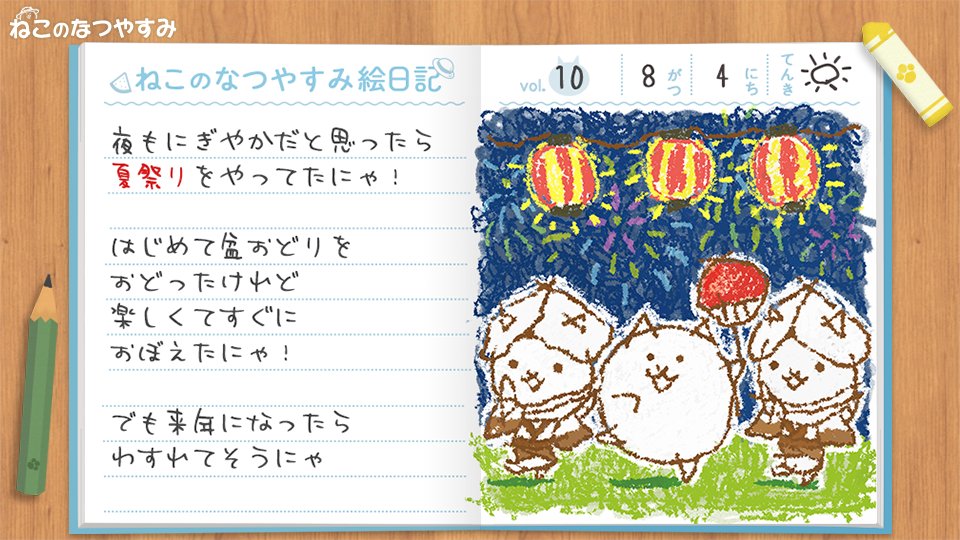 ねこのなつやすみ
ねこのなつやすみ絵日記
vol. 10 8 がつ 4 にち てんき
夜もにぎやかだと思ったら
夏祭りをやってたにゃ！
はじめて盆おどりを
おどったけれど
楽しくてすぐに
おぼえたにゃ！
でも来年になったら
わすれてそうにゃ